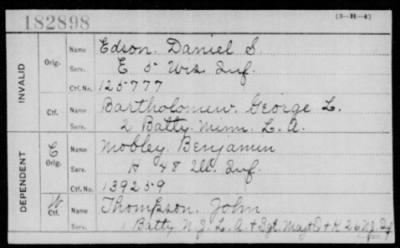 182898
(3-H-4)
INVALID
Orig. Name Edson, Daniel S.
Serv. E 5 Wis. Inf.
Ctf. No. 125777
Ctf. Name Bartholomew, George L.
Serv. 2 Batty. Minn. L. A.
DEPENDENT
Orig. Name Mobley, Benjamin
Serv. H 48 Ill. Inf.
Ctf. No. 139259
Ctf. Name Thompson, John
Serv. Batty N.J. L. A. + Sgt. Maj.